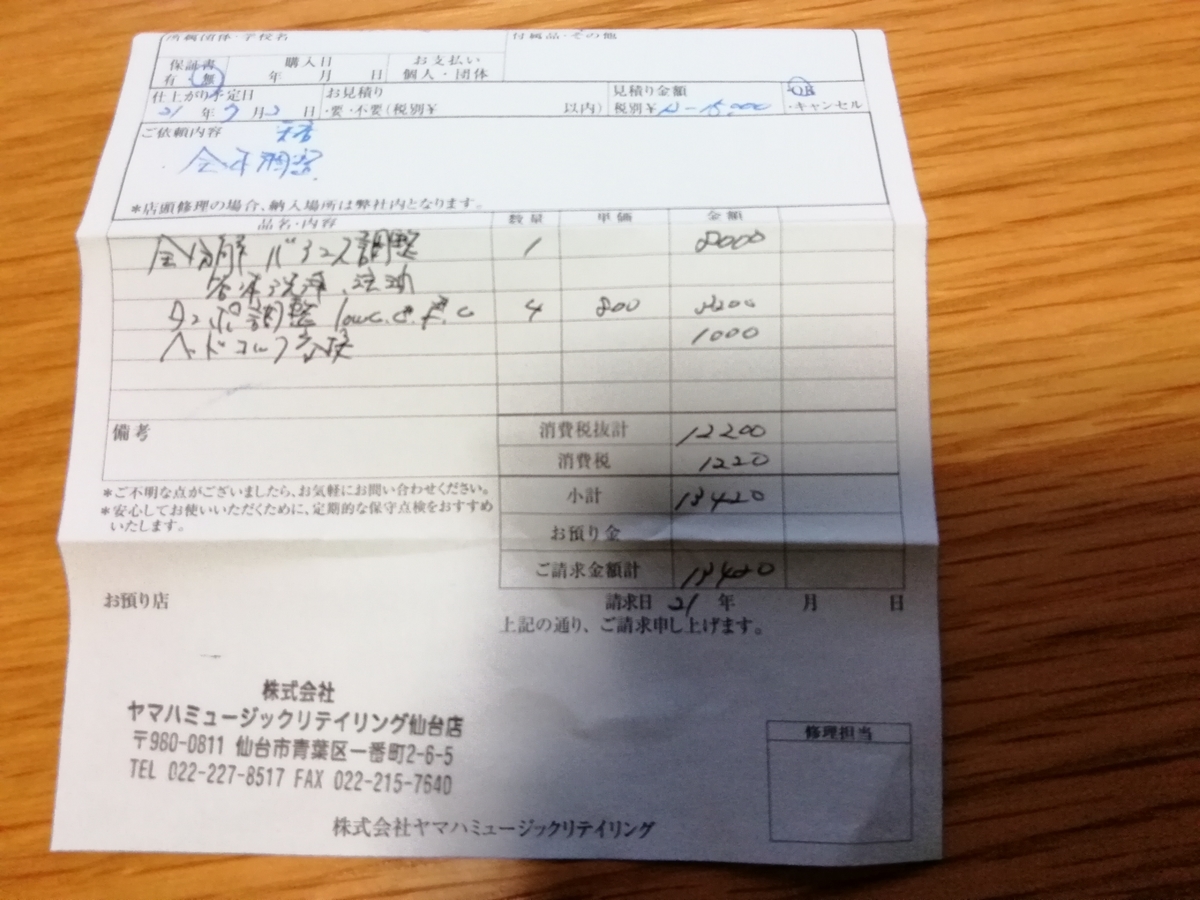 所属団体・学校名 付属品・その他
保証書 購入日 お支払い
有・無 年 月 日 個人・団体
仕上がり予定日 お見積り 見積り金額 ・OK
21 年 7 月 2 日 ・要・不要(税別¥ 以内) 税別¥ 15,000 ・キャンセル
ご依頼内容
全体調整
*店頭修理の場合、納入場所は弊社内となります。
品名・内容 数量 単価 金額
全分解 バランス調整 1 8000
管体洗浄、注油
タンポ調整 lowC. 4 800 3200
ヘッドコルク交換 1000
備考 消費税抜計 12200
消費税 1220
*ご不明な点がございましたら、お気軽にお問い合わせください。 小計 13420
*安心してお使いいただくために、定期的な保守点検をおすすめ
いたします。 お預り金
ご請求金額計 13420
お預り店 請求日 21 年 月 日
上記の通り、ご請求申し上げます。
株式会社
ヤマハミュージックリテイリング仙台店
〒980-0811 仙台市青葉区一番町2-6-5
TEL 022-227-8517 FAX 022-215-7640
修理担当
株式会社ヤマハミュージックリテイリング